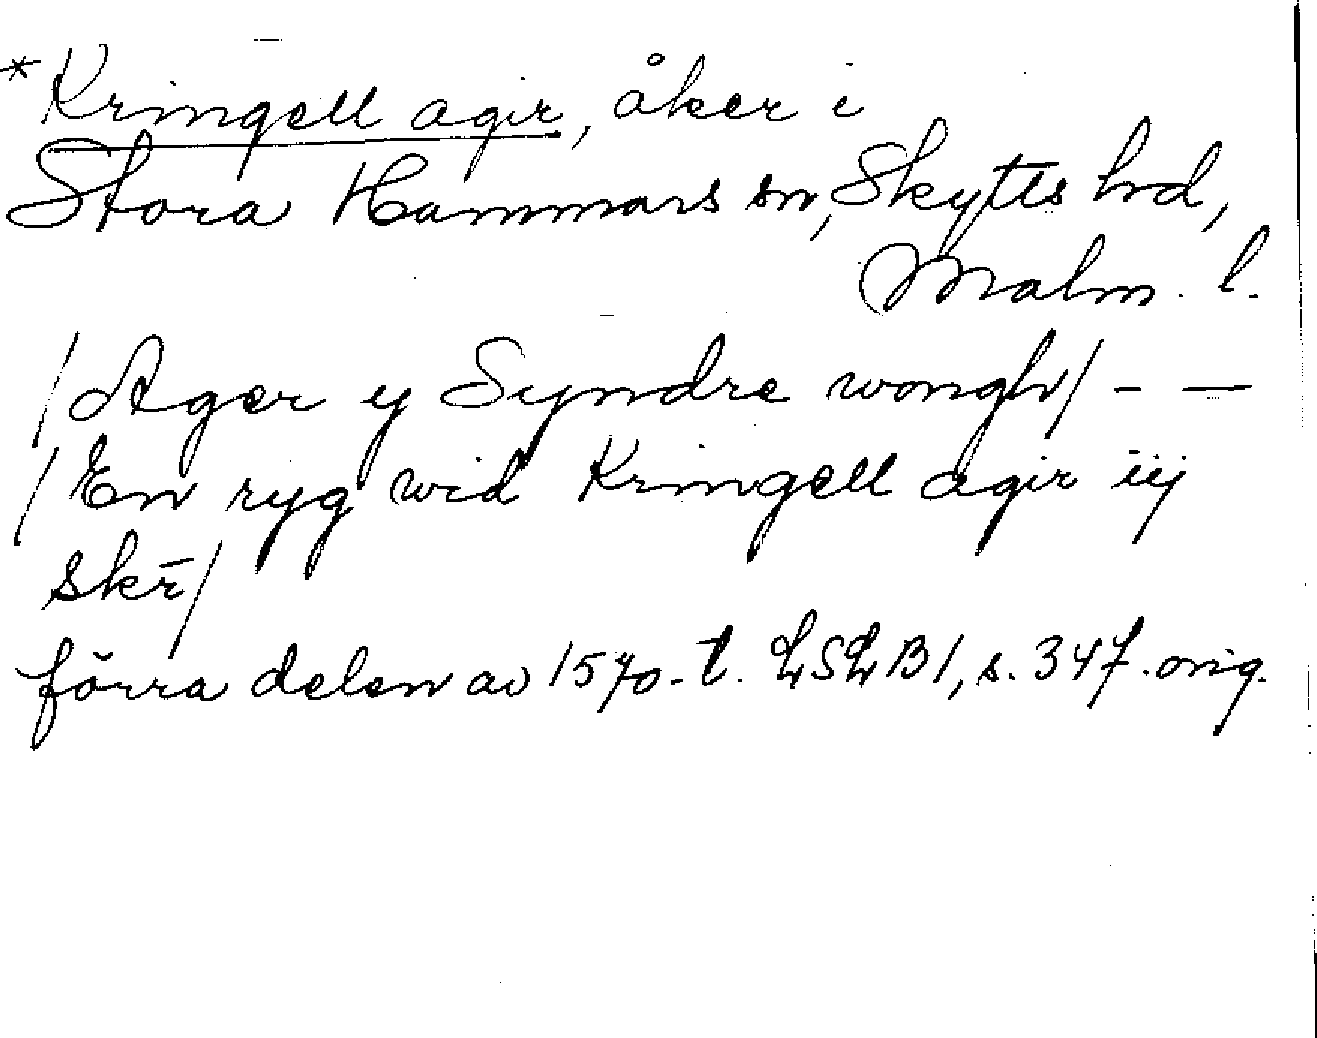 *Kringell agir, åker i
Stora Hammars sn, Skytts hd,
Malm. l.
/Ager ij Syndre wongh/ - -
/En ryg wid Kringell agir iij
skr̄/
förra delen av 1570-t. LSLB1, s. 347. orig.